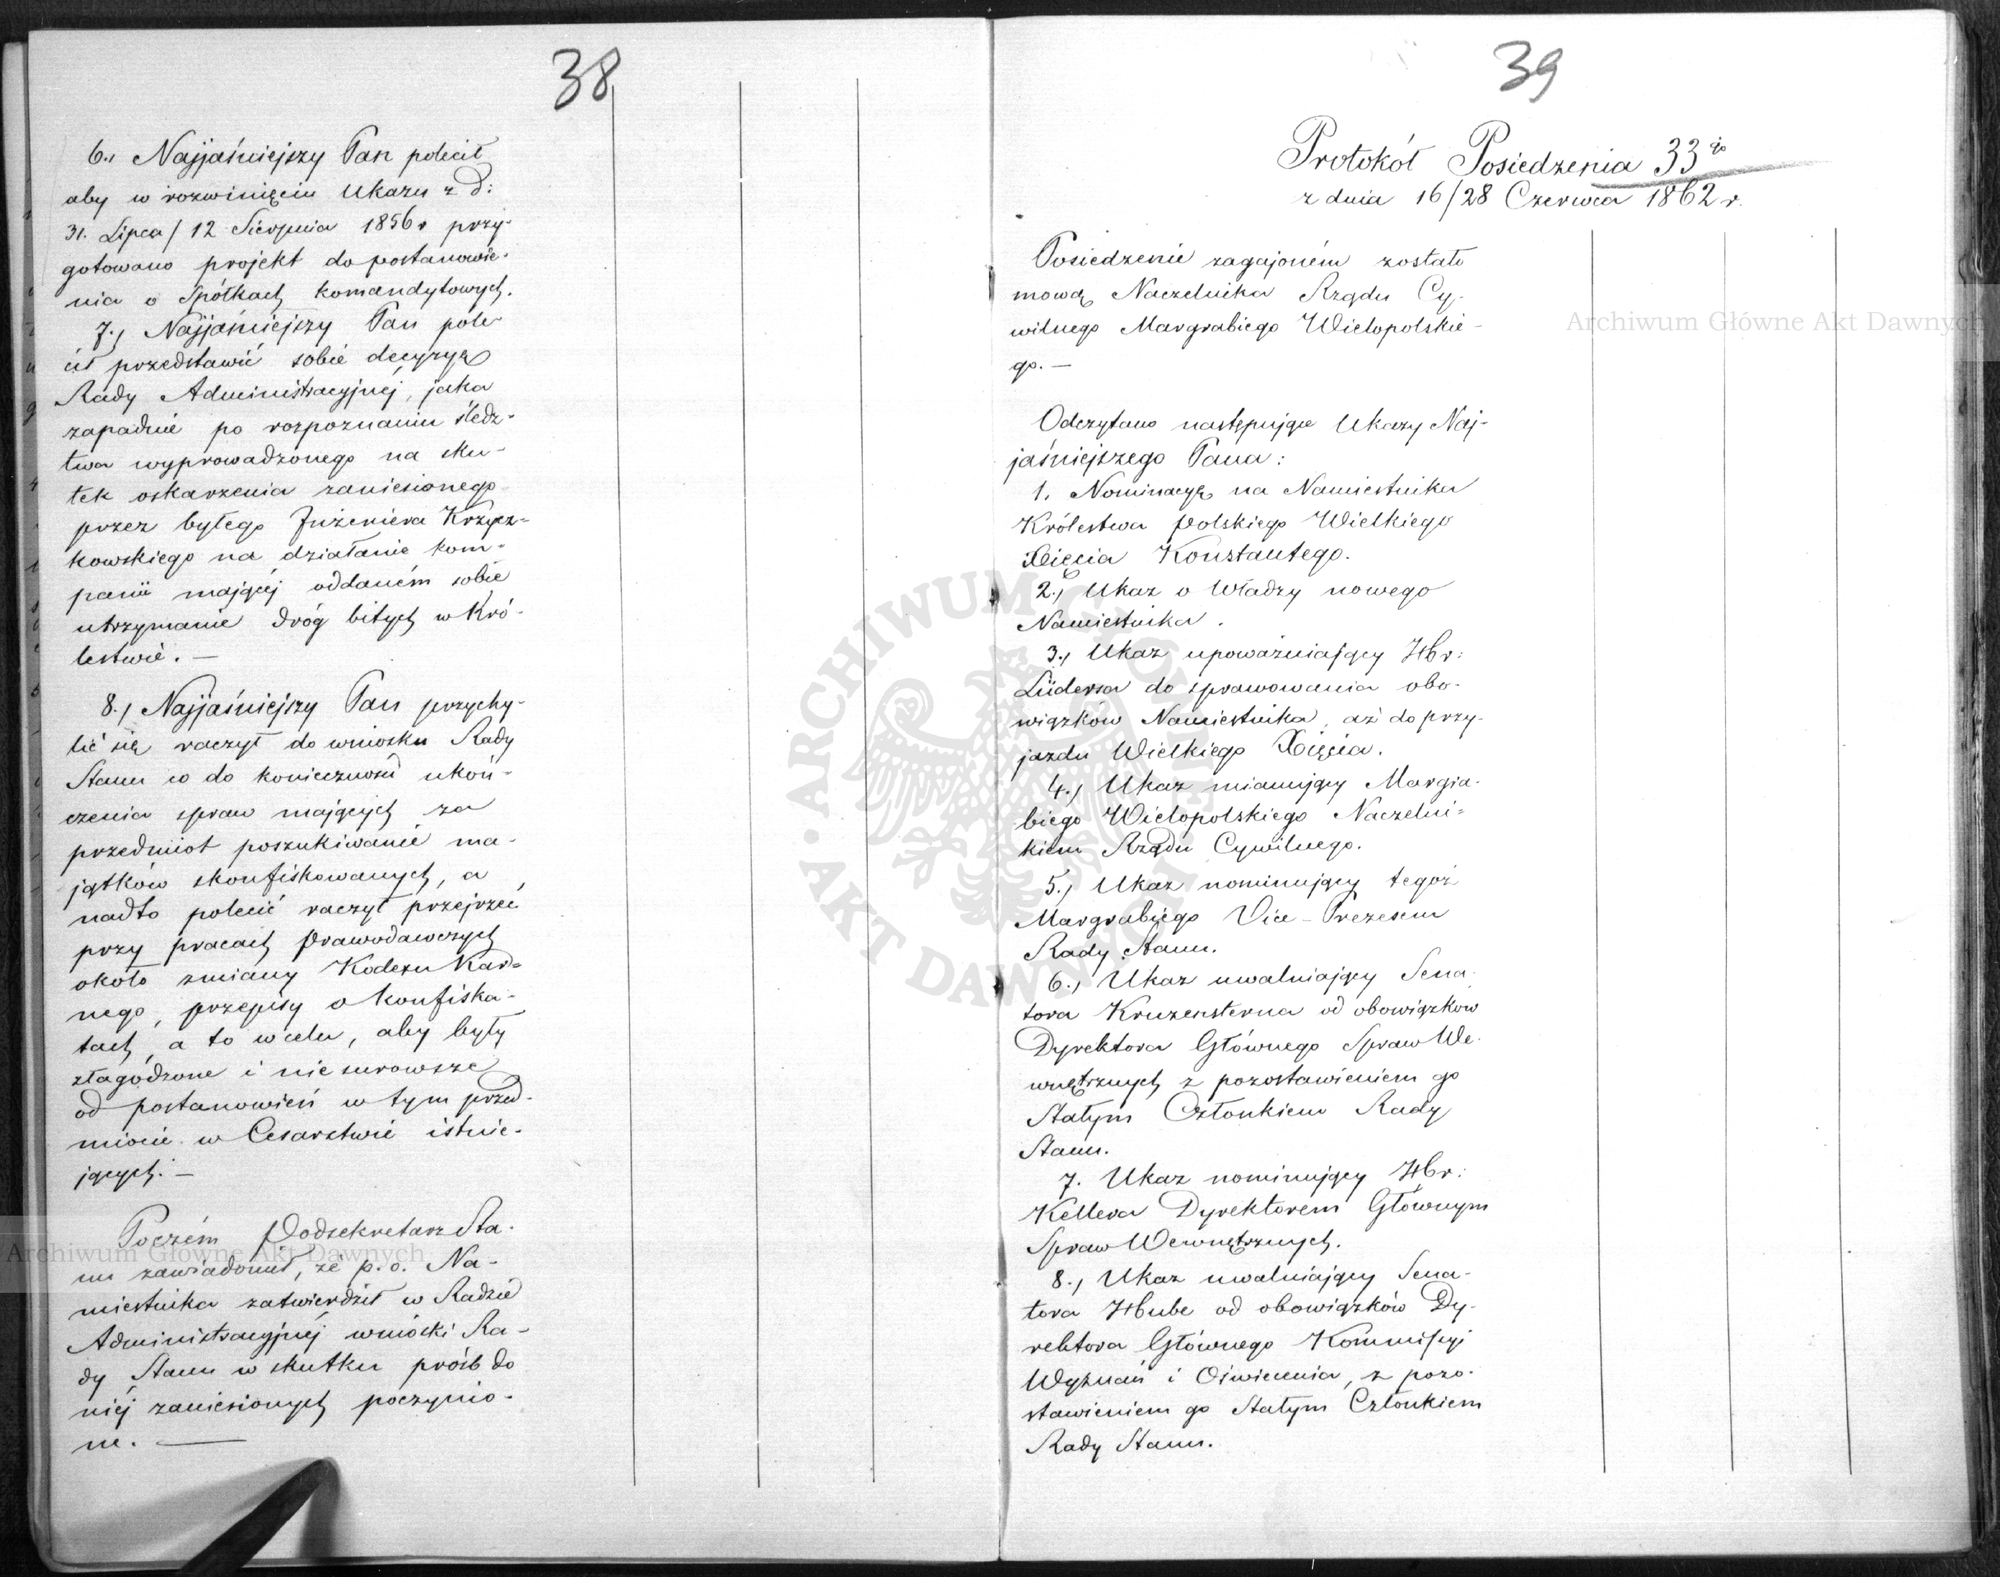 38
6., Najjaśniejszy Pan polecił
aby w rozwinięciu Ukazu z d:
31. Lipca / 12 Sierpnia 1856 r przy-
gotowano projekt do postanowie-
nia o Spółkach komandytowych.
7., Najjaśniejszy Pan pole-
cił przedstawić sobie decyzyę
Rady Administracyjnéj, jaka
zapadnie po rozpoznaniu śledz-
twa wyprowadzonego na sku-
tek oskarzenia zaniesionego
przez byłego Inżeniera Krzycz-
kowskiego na działanie kom-
panii mającéj oddaném sobie
utrzymanie dróg bitych w Kró-
lestwie. —
8., Najjaśniejszy Pan przychy-
lić się raczył do wniosku Rady
Stanu co do konieczności ukoń-
czenia spraw mających za
przedmiot poszukiwanie ma-
jątków skonfiskowanych, a
nadto polecić raczył przejrzeć
przy pracach Prawodawczych
około zmiany Kodexu Kar-
nego, przepisy o konfiska-
tach, a to w celu, aby były
złagodzone i nie surowsze
od postanowień w tym przed-
miocie w Cesarstwie istnie-
jących. —
Poczém Podsekretarz Sta-
nu zawiadomił, że p. o. Na-
miestnika zatwierdził w Radzie
Administracyjnéj wnioski Ra-
dy Stanu w skutku próśb do
niéj zaniesionych poczynio-
ne. —
39
Protokół Posiedzenia 33go
z dnia 16/28 Czerwca 1862 r.
Posiedzenie zagajoném zostało
mową Naczelnika Rządu Cy-
wilnego Margrabiego Wielopolskie-
go. —
Odczytano następujące Ukazy Naj-
jaśniejszego Pana:
1. Nominacyę na Namiestnika
Królestwa Polskiego Wielkiego
Xięcia Konstantego.
2., Ukaz o Władzy nowego
Namiestnika.
3., Ukaz upoważniający Hbr:
Lüdersa do sprawowania obo-
wiązków Namiestnika, aż do przy-
jazdu Wielkiego Xięcia.
4., Ukaz mianujący Margra-
biego Wielopolskiego Naczelni-
kiem Rządu Cywilnego.
5., Ukaz nominujący tegoż
Margrabiego Vice-Prezesem
Rady Stanu.
6., Ukaz uwalniający Sena-
tora Kruzensterna od obowiązkow
Dyrektora Głównego Spraw We-
wnętrznych z pozostawieniem go
Stałym Członkiem Rady
Stanu.
7. Ukaz nominujący Hbr:
Kellera Dyrektorem Głównym
Spraw Wewnętrznych.
8., Ukaz uwalniający Sena-
tora Hube od obowiązków Dy-
rektora Głównego Kommissyi
Wyznań i Oświecenia, z pozo-
stawieniem go Stałym Członkiem
Rady Stanu.
Archiwum Główne Akt Dawnych
Archiwum Główne Akt Dawnych
ARCHIWUM GŁÓWNE AKT DAWNYCH